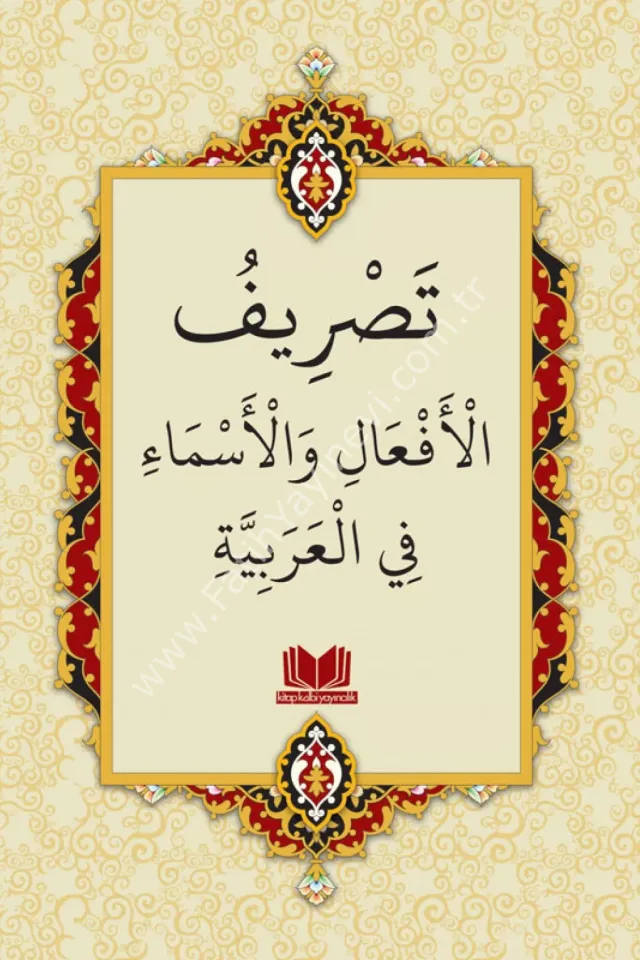 تَصْرِيفُ
الْأَفْعَالِ وَالْأَسْمَاءِ
فِي الْعَرَبِيَّةِ
kitap kalbi yayıncılık
www.Fatihyayinevi.com.tr